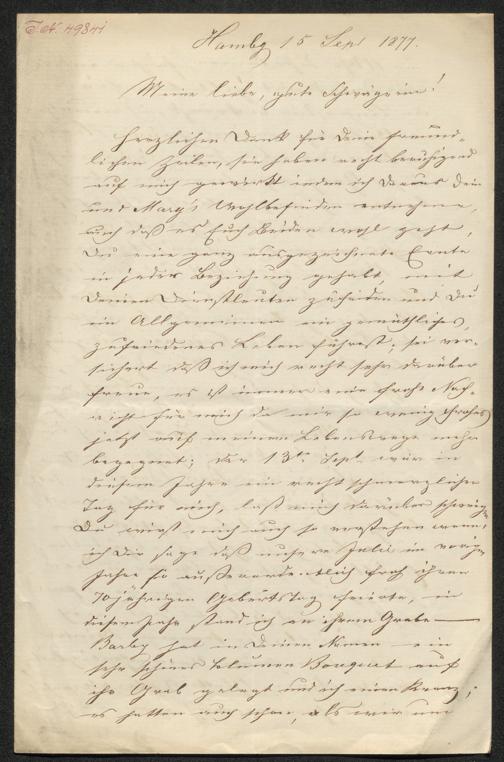 T.N. 49841
Hambg 15 Sept 1877.
Meine liebe, gute Schwägerin!
Herzlichen Dank für Deine freund-
lichen Zeilen, sie haben recht beruhigend
auf mich gewirkt indem ich daraus Dein
und Mary's Wohlbefinden entnehme,
auch daß es Euch Beiden wohl geht,
Du eine ganz ausgezeichnete Ernte
in jeder Beziehung gehabt, mit
Deinen Dienstleuten zufrieden und Du
im Allgemeinen ein gemüthliches,
zufriedenes Leben führest; sei ver-
sichert daß ich mich recht sehr darüber
freue, es ist immer eine frohe Nach-
richt für mich da mir so wenig Frohes
jetzt auf meinem Lebenswege mehr
begegnet; der 13te Sept. war in
diesem Jahre ein recht schmerzlicher
Tag für mich, laß mich darüber schweigen
Du wirst mich auch so verstehen wenn
ich Dir sage daß unsere Julie im vorigen
Jahre so außerordentlich froh ihren
70jährigen Geburtstag feierte, in
diesem Jahr stand ich an ihrem Grabe —
Barby hat in Deinem Namen ein
sehr schönes Blumen Bouquet auf
ihr Grab gelegt und ich einen Kranz;
es hatten auch schon, als wir um